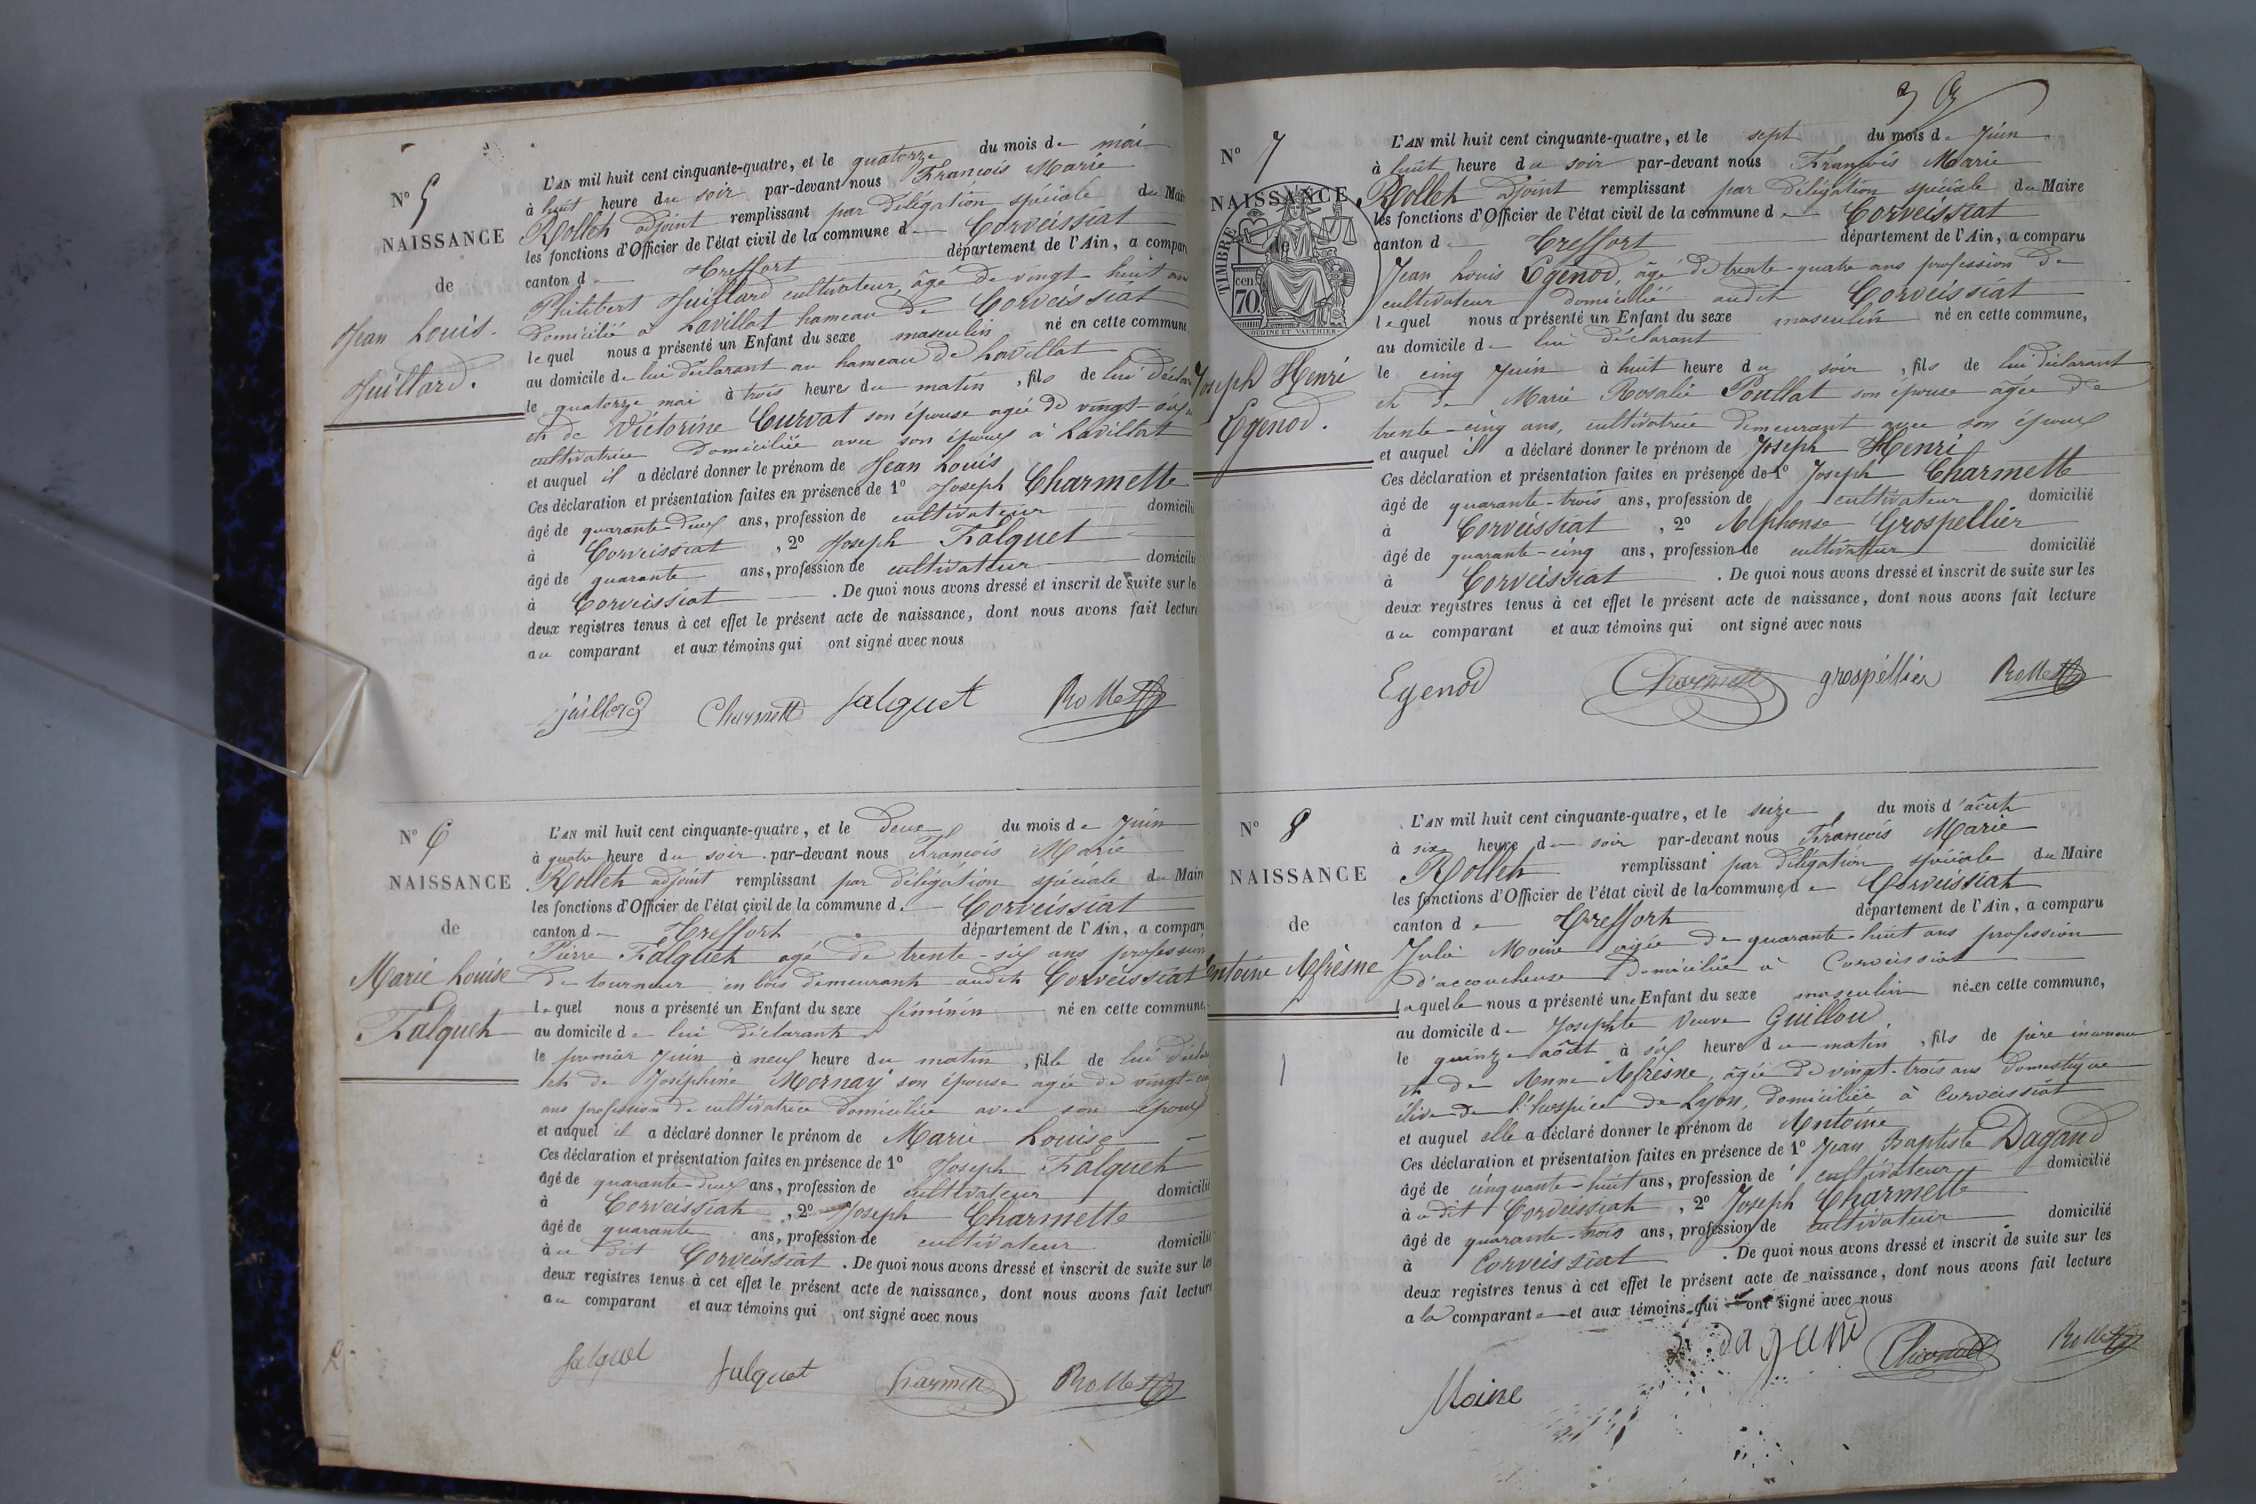 N° 5
NAISSANCE
de
Jean Louis
Juillard.
L'AN mil huit cent cinquante-quatre, et le quatorze du mois de mai
à huit heure du soir par-devant nous François Marie
Rollet adjoint remplissant par délégation spéciale du Maire
les fonctions d'Officier de l'état civil de la commune de Corveissiat
canton de Treffort département de l'Ain, a comparu
Philibert Juillard cultivateur, âgé de vingt huit ans
domicilié à Lavillat hameau de Corveissiat
lequel nous a présenté un Enfant du sexe masculin né en cette commune,
au domicile de lui déclarant au hameau de Lavillat
le quatorze mai à trois heures du matin, fils de lui déclar
et de Victorine Curvat son épouse agée de vingt-six
cultivatrice domiciliée avec son époux à Lavillat
et auquel il a déclaré donner le prénom de Jean Louis
Ces déclaration et présentation faites en présence de 1° Joseph Charmette
âgé de quarante-deux ans, profession de cultivateur domicilié
à Corveissiat, 2° Joseph Falquet
âgé de quarante ans, profession de cultivateur domicilié
à Corveissiat. De quoi nous avons dressé et inscrit de suite sur les
deux registres tenus à cet effet le présent acte de naissance, dont nous avons fait lecture
au comparant et aux témoins qui ont signé avec nous
juillard Charmette falquet Rollet
N° 6
NAISSANCE
de
Marie Louise
Falquet
L'AN mil huit cent cinquante-quatre, et le deux du mois de Juin
à quatre heure du soir par-devant nous François Marie
Rollet adjoint remplissant par délégation spéciale du Maire
les fonctions d'Officier de l'état civil de la commune de Corveissiat
canton de Treffort département de l'Ain, a comparu
Pierre Falquet agé de trente-six ans profession
de tourneur en bois demeurant audit Corveissiat
lequel nous a présenté un Enfant du sexe féminin né en cette commune,
au domicile de lui déclarant
le premier Juin à neuf heure du matin, fille de lui déclar
et de Joséphine Mornay son épouse agée de vingt-
ans profession de cultivatrice domiciliée avec son époux
et auquel il a déclaré donner le prénom de Marie Louise
Ces déclaration et présentation faites en présence de 1° Joseph Falquet
âgé de quarante-deux ans, profession de cultivateur domicilié
à Corveissiat, 2° Joseph Charmette
âgé de quarante ans, profession de cultivateur domicilié
au dit Corveissiat. De quoi nous avons dressé et inscrit de suite sur les
deux registres tenus à cet effet le présent acte de naissance, dont nous avons fait lecture
au comparant et aux témoins qui ont signé avec nous
falquet falquet Charmette Rollet
N° 7
NAISSANCE
de
TIMBRE
70 cen.
OUDINÉ ET VAUTHIER
Joseph Henri
Egenod.
L'AN mil huit cent cinquante-quatre, et le sept du mois de Juin
à huit heure du soir par-devant nous François Marie
Rollet adjoint remplissant par délégation spéciale du Maire
les fonctions d'Officier de l'état civil de la commune de Corveissiat
canton de Treffort département de l'Ain, a comparu
Jean Louis Egenod, âgé de trente-quatre ans profession de
cultivateur domicilié audit Corveissiat
lequel nous a présenté un Enfant du sexe masculin né en cette commune,
au domicile de lui déclarant
le cinq Juin à huit heure du soir, fils de lui déclarant
et de Marie Rosalie Poullat son épouse agée de
trente-cinq ans, cultivatrice demeurant avec son époux
et auquel il a déclaré donner le prénom de Joseph Henri
Ces déclaration et présentation faites en présence de 1° Joseph Charmette
âgé de quarante-trois ans, profession de cultivateur domicilié
à Corveissiat, 2° Alphonse Grospellier
âgé de quarante-cinq ans, profession de cultivateur domicilié
à Corveissiat. De quoi nous avons dressé et inscrit de suite sur les
deux registres tenus à cet effet le présent acte de naissance, dont nous avons fait lecture
au comparant et aux témoins qui ont signé avec nous
Egenod Charmette grospéllier Rollet
N° 8
NAISSANCE
de
Antoine Afresne
L'AN mil huit cent cinquante-quatre, et le seize du mois d'août
à six heure du soir par-devant nous François Marie
Rollet remplissant par délégation spéciale du Maire
les fonctions d'Officier de l'état civil de la commune de Corveissiat
canton de Treffort département de l'Ain, a comparu
Julie Moine agée de quarante-huit ans profession
d'accoucheuse domiciliée à Corveissiat
laquelle nous a présenté un Enfant du sexe masculin né en cette commune,
au domicile de Josephte Veuve Guillou
le quinze août à six heure du matin, fils de père inconnu
et de Anne Afresne, agée de vingt-trois ans domestique
élève de l'hospice de Lyon, domiciliée à Corveissiat
et auquel elle a déclaré donner le prénom de Antoine
Ces déclaration et présentation faites en présence de 1° Jean Baptiste Dagand
âgé de cinquante-huit ans, profession de cultivateur domicilié
à u dit Corveissiat, 2° Joseph Charmette
âgé de quarante-trois ans, profession de cultivateur domicilié
à Corveissiat. De quoi nous avons dressé et inscrit de suite sur les
deux registres tenus à cet effet le présent acte de naissance, dont nous avons fait lecture
a la comparante et aux témoins qui ont signé avec nous
Moine dagand Charmette Rollet